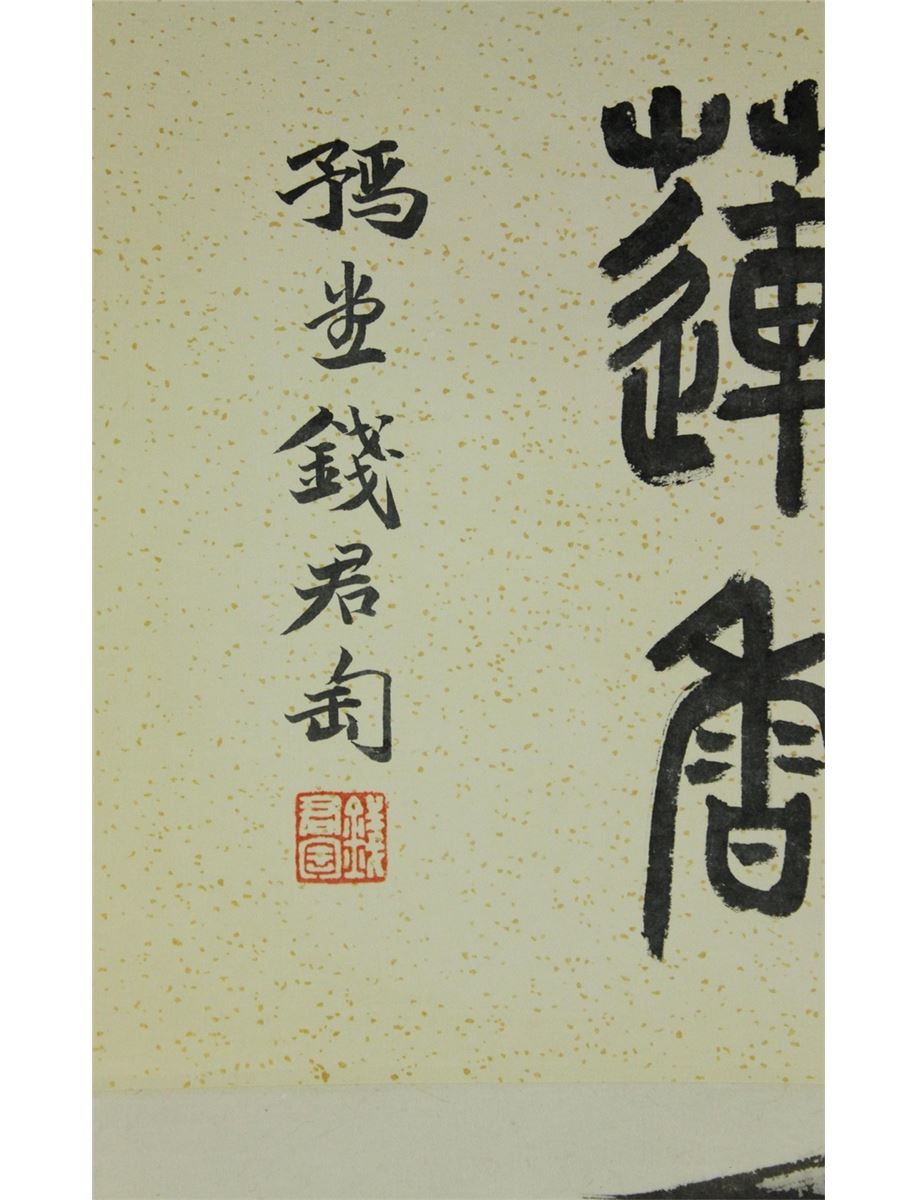 蓮香
豫堂錢君匋
錢君匋